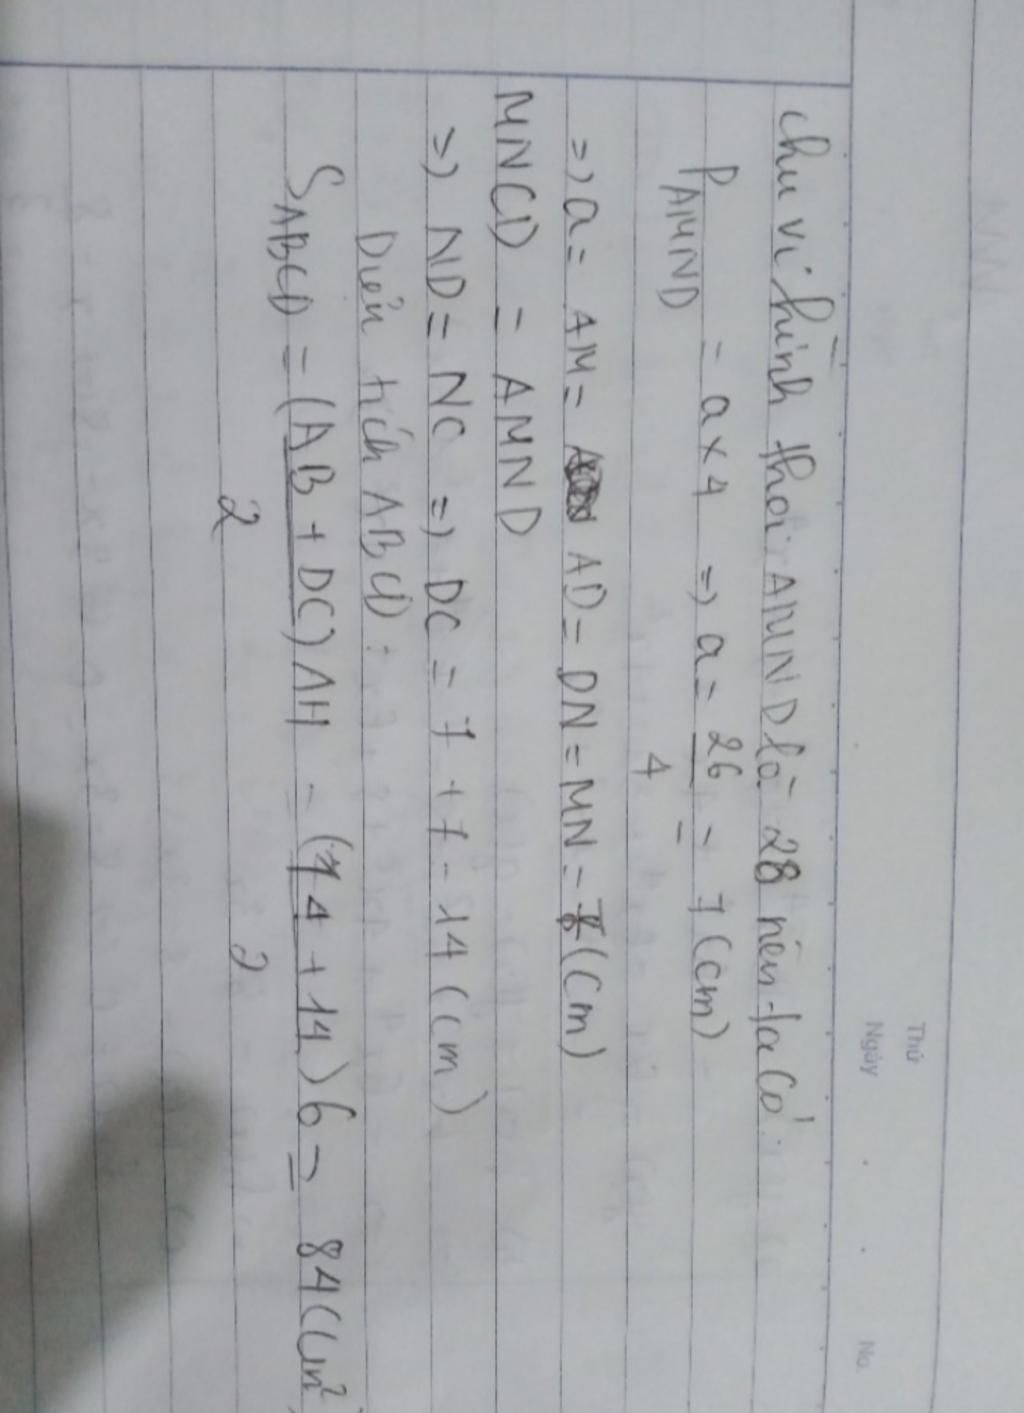 Thứ
Ngày
No.
chu vi hình thoi AMND là 28 nên ta có:
P AMND = a x 4 => a = 26/4 = 7 (cm)
=> a = AM = AD = DN = MN = 7 (cm)
MNCD = AMND
=> ND = NC => DC = 7 + 7 = 14 (cm)
Diện tích ABCD:
S ABCD = (AB + DC) AH / 2 = (14 + 14) 6 / 2 = 84 (cm²)